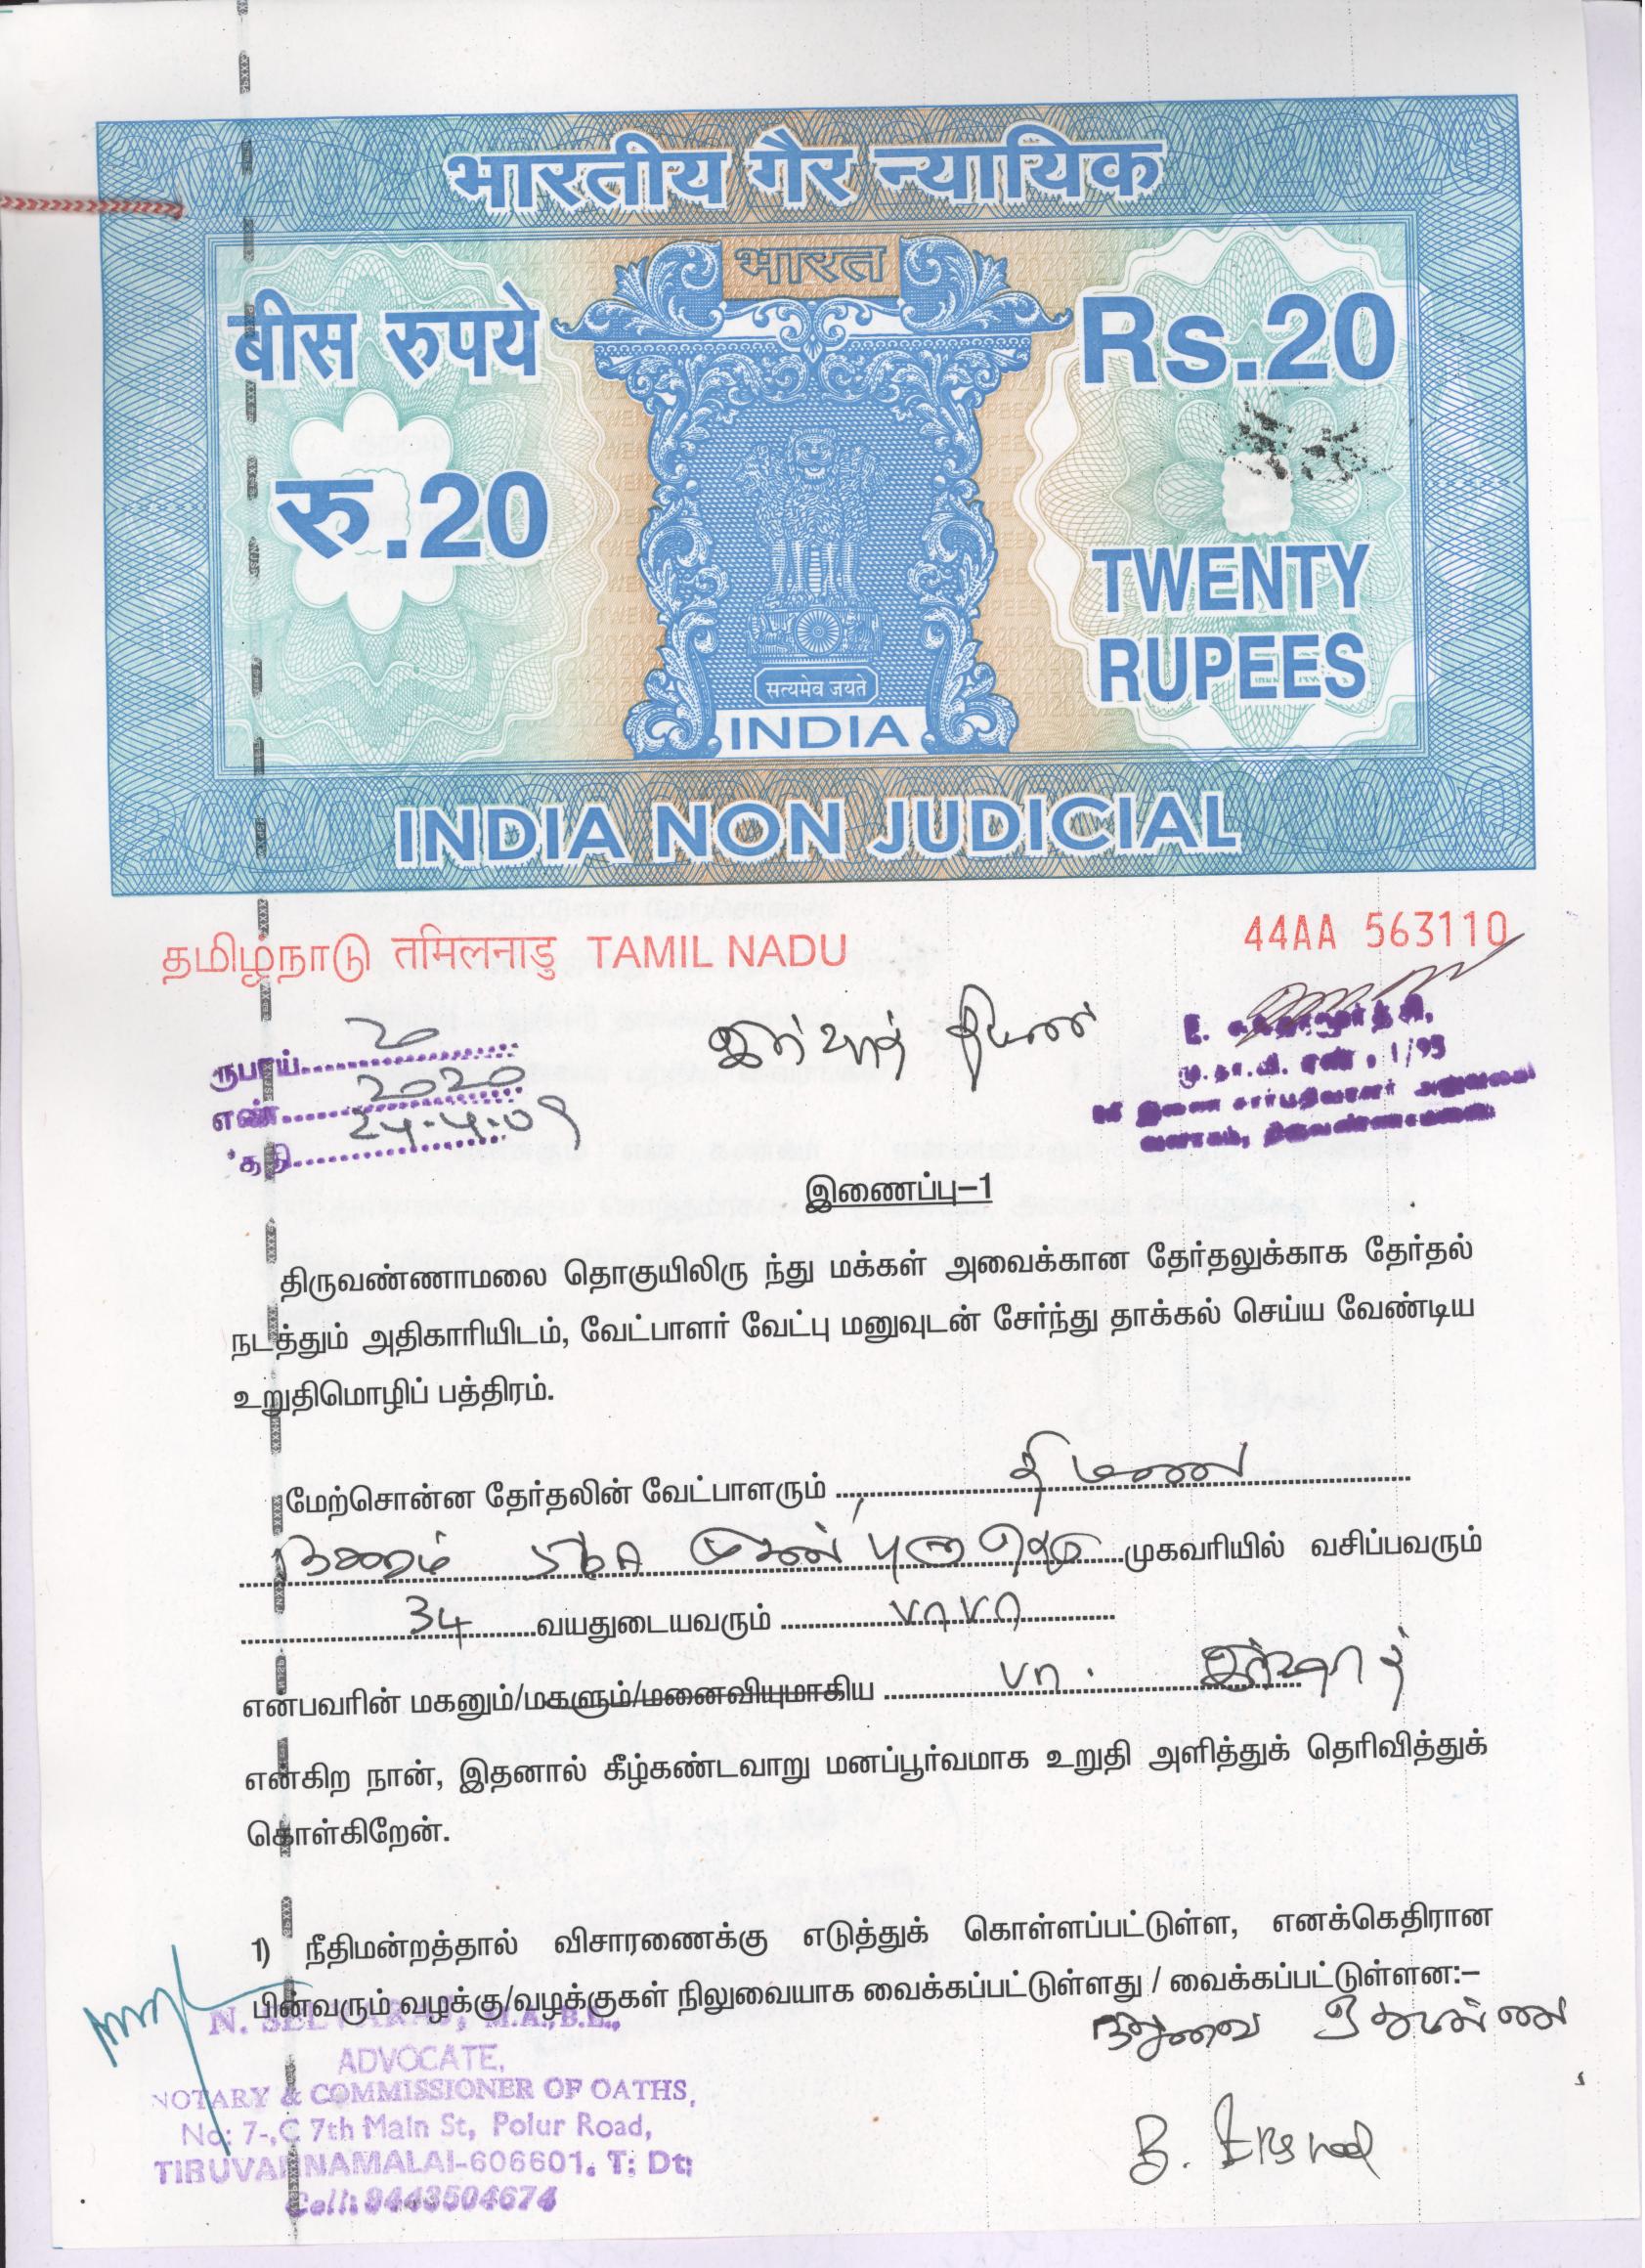 भारतीय गैर न्यायिक
भारत
बीस रुपये
Rs.20
रु.20
TWENTY
RUPEES
सत्यमेव जयते
INDIA
INDIA NON JUDICIAL
தமிழ்நாடு तमिलनाडु TAMIL NADU
44AA 563110
ரூபாய் 20
எண் 2020
தேதி 24.4.09
மு.தா.வி. எண். 1/95
இணைப்பு–1
திருவண்ணாமலை தொகுயிலிரு ந்து மக்கள் அவைக்கான தேர்தலுக்காக தேர்தல்
நடத்தும் அதிகாரியிடம், வேட்பாளர் வேட்பு மனுவுடன் சேர்ந்து தாக்கல் செய்ய வேண்டிய
உறுதிமொழிப் பத்திரம்.
மேற்சொன்ன தேர்தலின் வேட்பாளரும்
முகவரியில் வசிப்பவரும்
34 வயதுடையவரும் பாபா
என்பவரின் மகனும்/மகளும்/மனைவியுமாகிய பா. இர்ஷாத்
என்கிற நான், இதனால் கீழ்கண்டவாறு மனப்பூர்வமாக உறுதி அளித்துக் தெரிவித்துக்
கொள்கிறேன்.
1) நீதிமன்றத்தால் விசாரணைக்கு எடுத்துக் கொள்ளப்பட்டுள்ள, எனக்கெதிரான
பின்வரும் வழக்கு/வழக்குகள் நிலுவையாக வைக்கப்பட்டுள்ளது / வைக்கப்பட்டுள்ளன:–
N. SELVARAJ, M.A.,B.L.,
ADVOCATE,
NOTARY & COMMISSIONER OF OATHS,
No: 7-,C 7th Main St, Polur Road,
TIRUVANNAMALAI-606601. T: Dt;
Cell: 9443504674
B. Irshad